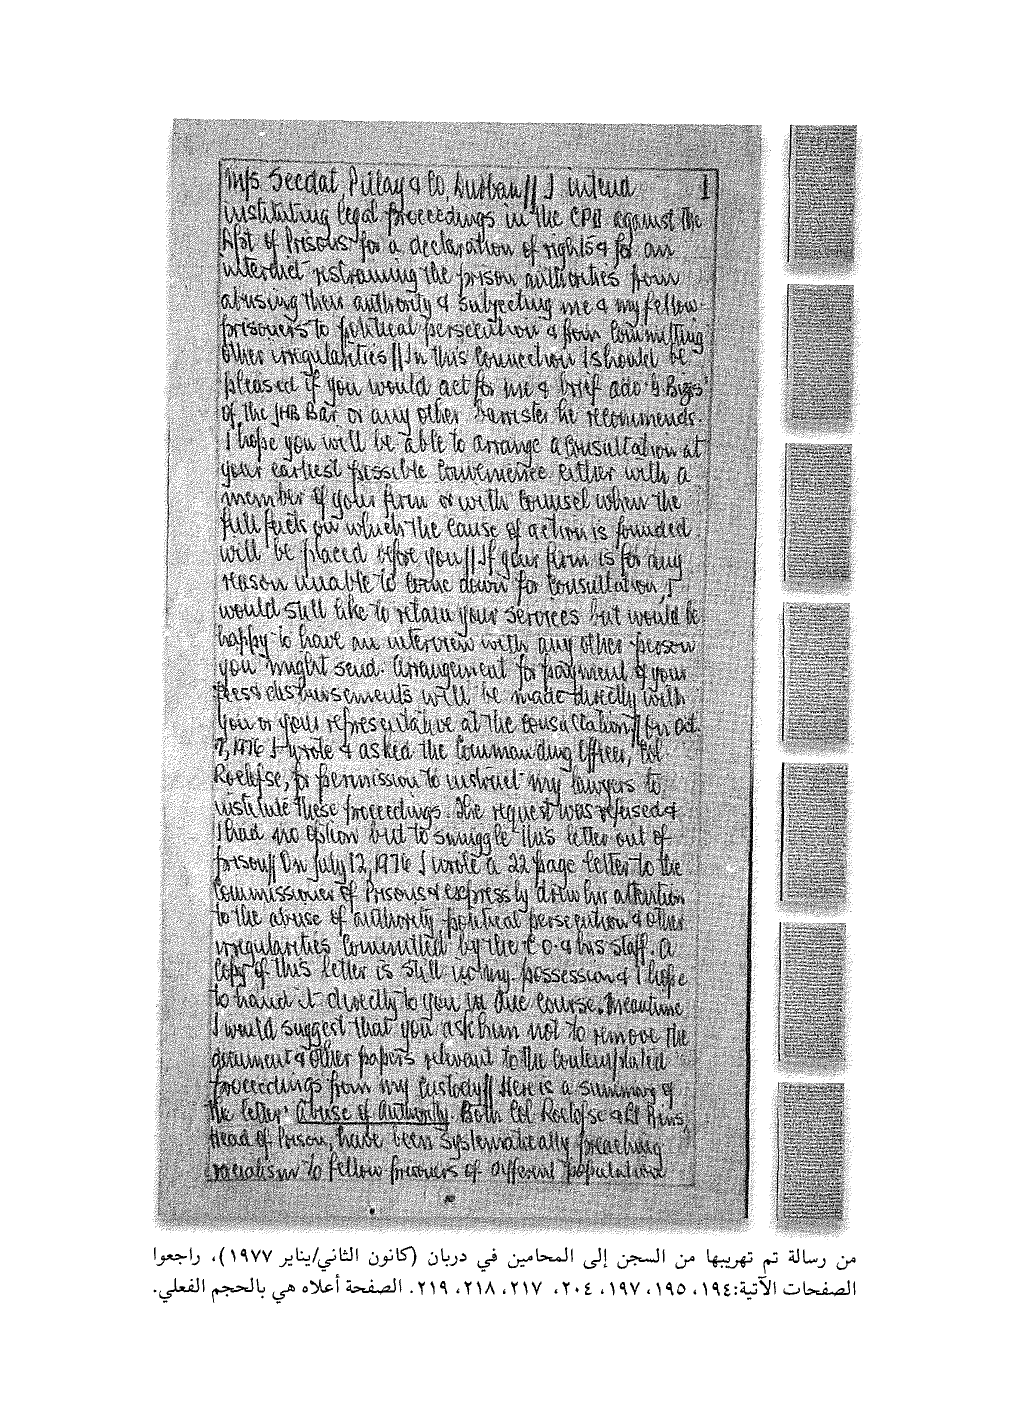 M/s Seedat, Pillay & Co, Durban // I intend 1
instituting legal proceedings in the CPD against the
of Prisons for a declaration of rights & for an
interdict restraining the prison authorities from
abusing their authority & subjecting me & my fellow
prisoners to political persecution & from committing
other irregularities // In this connection I should be
pleased if you would act for me & brief adv. G Bizos
of the JHB Bar or any other barrister he recommends.
I hope you will be able to arrange a consultation at
your earliest possible convenience either with a
member of your firm or with counsel when the
full facts on which the cause of action is founded
will be placed before you // If your firm is for any
reason unable to come down for consultation, I
would still like to retain your services but would be
happy to have an interview with any other person
you might send. Arrangement for payment of your
fees & disbursements will be made directly with
you or your representative at the consultation // On Oct.
7, 1976 I wrote & asked the Commanding Officer, Col
Roelofse, for permission to instruct my lawyers to
institute these proceedings. The request was refused &
I had no option but to smuggle this letter out of
prison // On July 12, 1976 I wrote a 22 page letter to the
Commissioner of Prisons & expressly drew his attention
to the abuse of authority political persecution & other
irregularities committed by the C O. & his staff. A
copy of this letter is still in my possession & I hope
to hand it directly to you in due course. Meantime
I would suggest that you ask him not to remove the
document & other papers relevant to the contemplated
proceedings from my custody // Here is a summary of
the letter: Abuse of Authority. Both Col Roelofse & Lt Prins,
Head of Prison, have been systematically preaching
racialism to fellow prisoners of different population
من رسالة تم تهريبها من السجن إلى المحامين في دربان (كانون الثاني/يناير ١٩٧٧)، راجعوا
الصفحات الآتية:١٩٤، ١٩٥، ١٩٧، ٢٠٤، ٢١٧، ٢١٨، ٢١٩. الصفحة أعلاه هي بالحجم الفعلي.